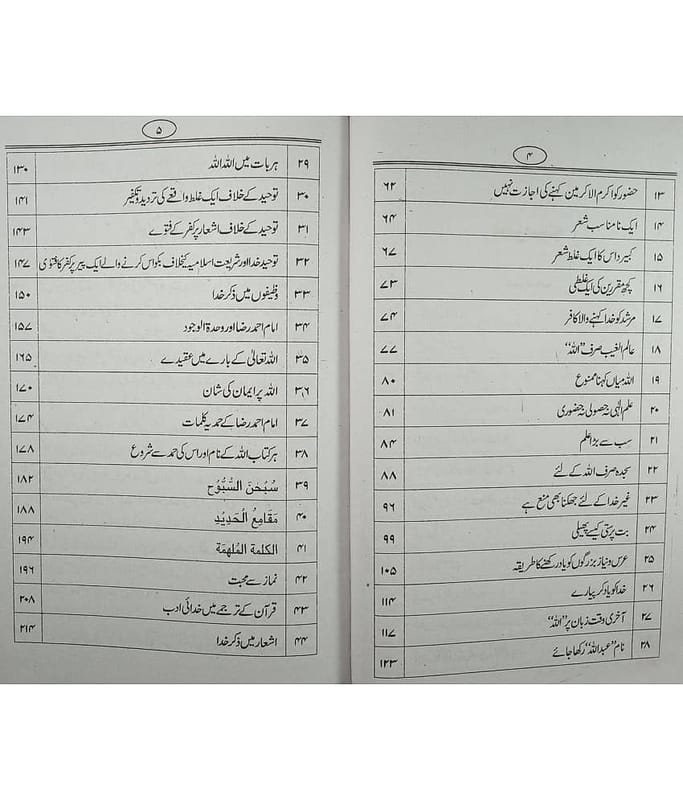 ۴
۱۳ حضور کو اکرم الاکرمین کہنے کی اجازت نہیں ۶۲
۱۴ ایک نامناسب شعر ۶۴
۱۵ کبیر داس کا ایک غلط شعر ۶۷
۱۶ کچھ مقررین کی ایک غلطی ۷۳
۱۷ مرشد کو خدا کہنے والا کافر ۷۴
۱۸ عالم الغیب صرف ’’اللہ‘‘ ۷۷
۱۹ اللہ میاں کہنا ممنوع ۸۰
۲۰ علم الٰہی نہ حصولی نہ حضوری ۸۱
۲۱ سب سے بڑا علم ۸۴
۲۲ سجدہ صرف اللہ کے لئے ۸۸
۲۳ غیر خدا کے لئے جھکنا بھی منع ہے ۹۶
۲۴ بت پرستی کیسے پھیلی ۹۹
۲۵ عرس و نیاز بزرگوں کو یاد رکھنے کا طریقہ ۱۰۵
۲۶ خدا کو یاد کر پیارے ۱۱۴
۲۷ آخری وقت زبان پر ’’اللہ‘‘ ۱۱۷
۲۸ نام ’’عبداللہ‘‘ رکھا جائے ۱۲۳
۵
۲۹ ہر بات میں اللہ اللہ ۱۳۰
۳۰ توحید کے خلاف ایک غلط واقعے کی تردید و تکفیر ۱۴۱
۳۱ توحید کے خلاف اشعار پر کفر کے فتوے ۱۴۳
۳۲ توحید خدا اور شریعت اسلامیہ کیخلاف بکواس کرنے والے ایک پیر پر کفر کا فتویٰ ۱۴۷
۳۳ وظیفوں میں ذکر خدا ۱۵۰
۳۴ امام احمد رضا اور وحدۃ الوجود ۱۵۷
۳۵ اللہ تعالیٰ کے بارے میں عقیدے ۱۶۵
۳۶ اللہ پر ایمان کی شان ۱۷۰
۳۷ امام احمد رضا کے حمدیہ کلمات ۱۷۴
۳۸ ہر کتاب اللہ کے نام اور اس کی حمد سے شروع ۱۷۸
۳۹ سُبْحٰنَ السُّبُّوْح ۱۸۲
۴۰ مَقَامِعُ الْحَدِیْدِ ۱۸۸
۴۱ الکلمۃ المُلھمَۃ ۱۹۴
۴۲ نماز سے محبت ۱۹۶
۴۳ قرآن کے ترجمے میں خدائی ادب ۲۰۸
۴۴ اشعار میں ذکر خدا ۲۱۴